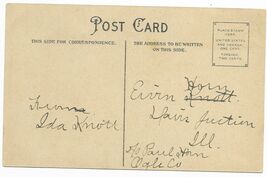 POST CARD
THIS SIDE FOR CORRESPONDENCE.
THE ADDRESS TO BE WRITTEN
ON THIS SIDE.
PLACE STAMP
HERE
UNITED STATES
AND CANADA
ONE CENT
FOREIGN
TWO CENTS
From
Ida Knott
Horn
Ervin Knott
Davis Junction
Ill.
c/o Paul Horn
Ogle Co